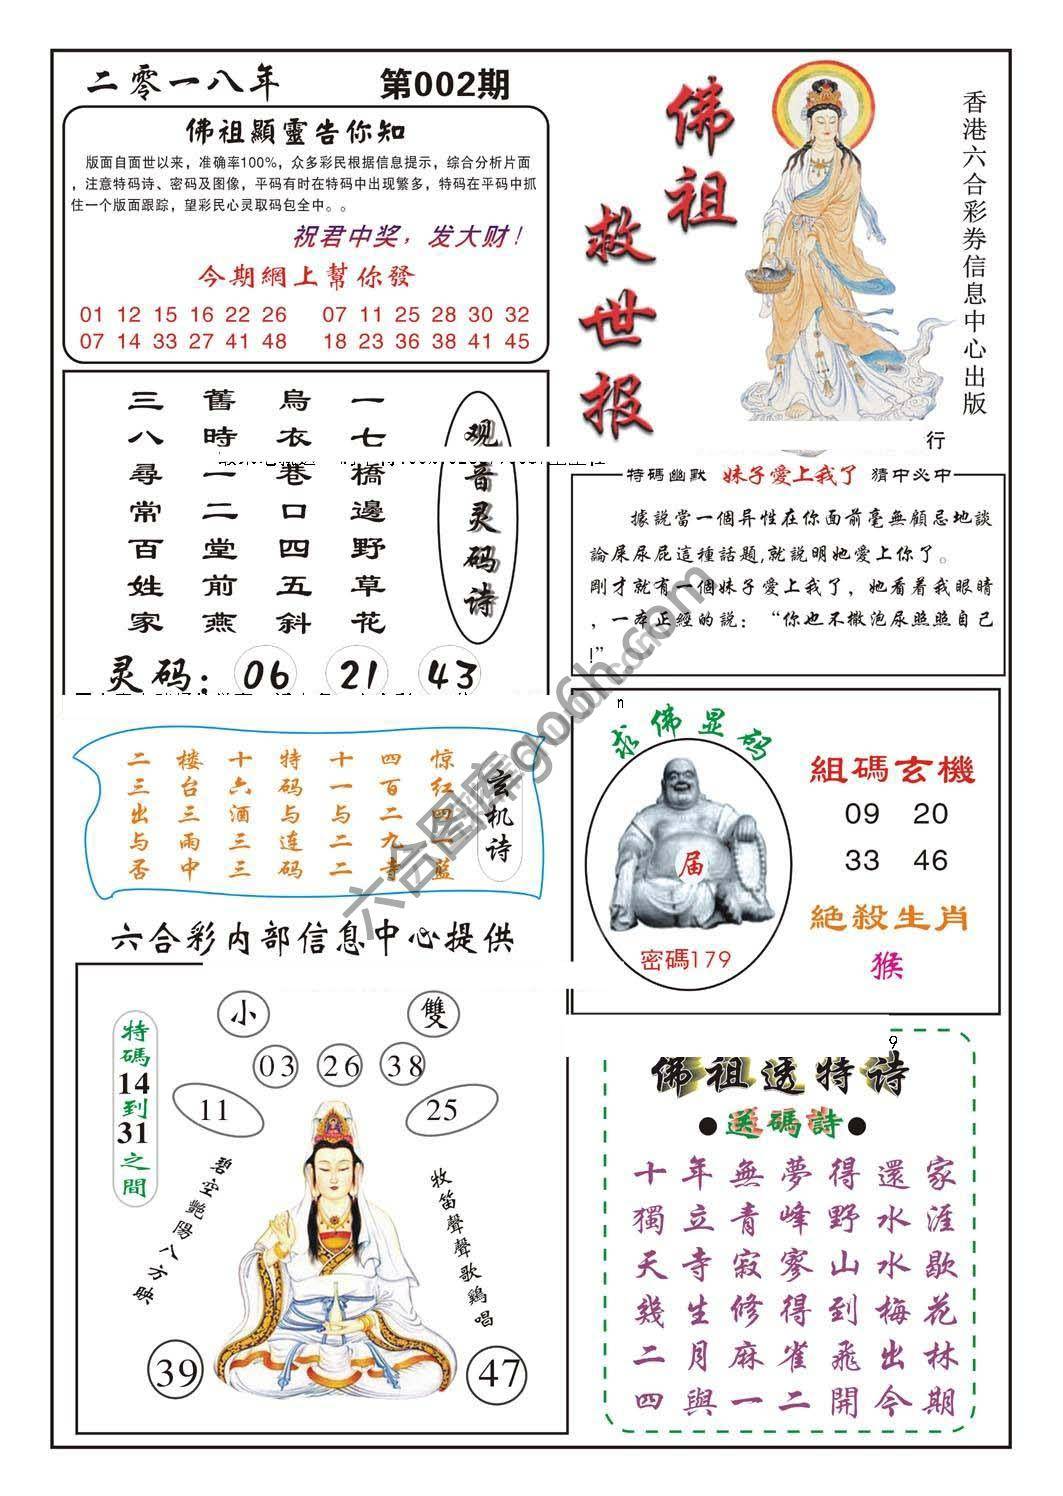 二零一八年 第002期
佛祖顯靈告你知
版面自面世以来，准确率100%，众多彩民根据信息提示，综合分析片面
，注意特码诗、密码及图像，平码有时在特码中出现繁多，特码在平码中抓
住一个版面跟踪，望彩民心灵取码包全中。。
祝君中奖，发大财！
今期網上幫你發
01 12 15 16 22 26 07 11 25 28 30 32
07 14 33 27 41 48 18 23 36 38 41 45
佛祖
救世报
香港六合彩券信息中心出版
行
观音灵码诗
一七橋邊野草花
烏衣巷口四五斜
舊時一二堂前燕
三八尋常百姓家
灵码：06 21 43
特碼幽默 妹子愛上我了 猜中必中
據説當一個异性在你面前毫無顧忌地談
論屎尿屁這種話題,就説明她愛上你了。
剛才就有一個妹子愛上我了，她看着我眼睛
，一本正經的説：“你也不撒泡尿照照自己
!”
n
玄机诗
惊红四一蓝
四百二九寺
十一与二二
特码与连码
十六酒三三
楼台三雨中
二三出与否
六合彩内部信息中心提供
求佛显码
届
密碼179
組碼玄機
09 20
33 46
絶殺生肖
猴
小 雙
03 26 38
11 25
特碼14到31之間
碧空艷陽八方映
牧笛聲聲歌鷄唱
39 47
9
佛祖透特诗
●送碼詩●
十年無夢得還家
獨立青峰野水涯
天寺寂寥山水歇
幾生修得到梅花
二月麻雀飛出林
四與一二開今期
六合图库go6h.com